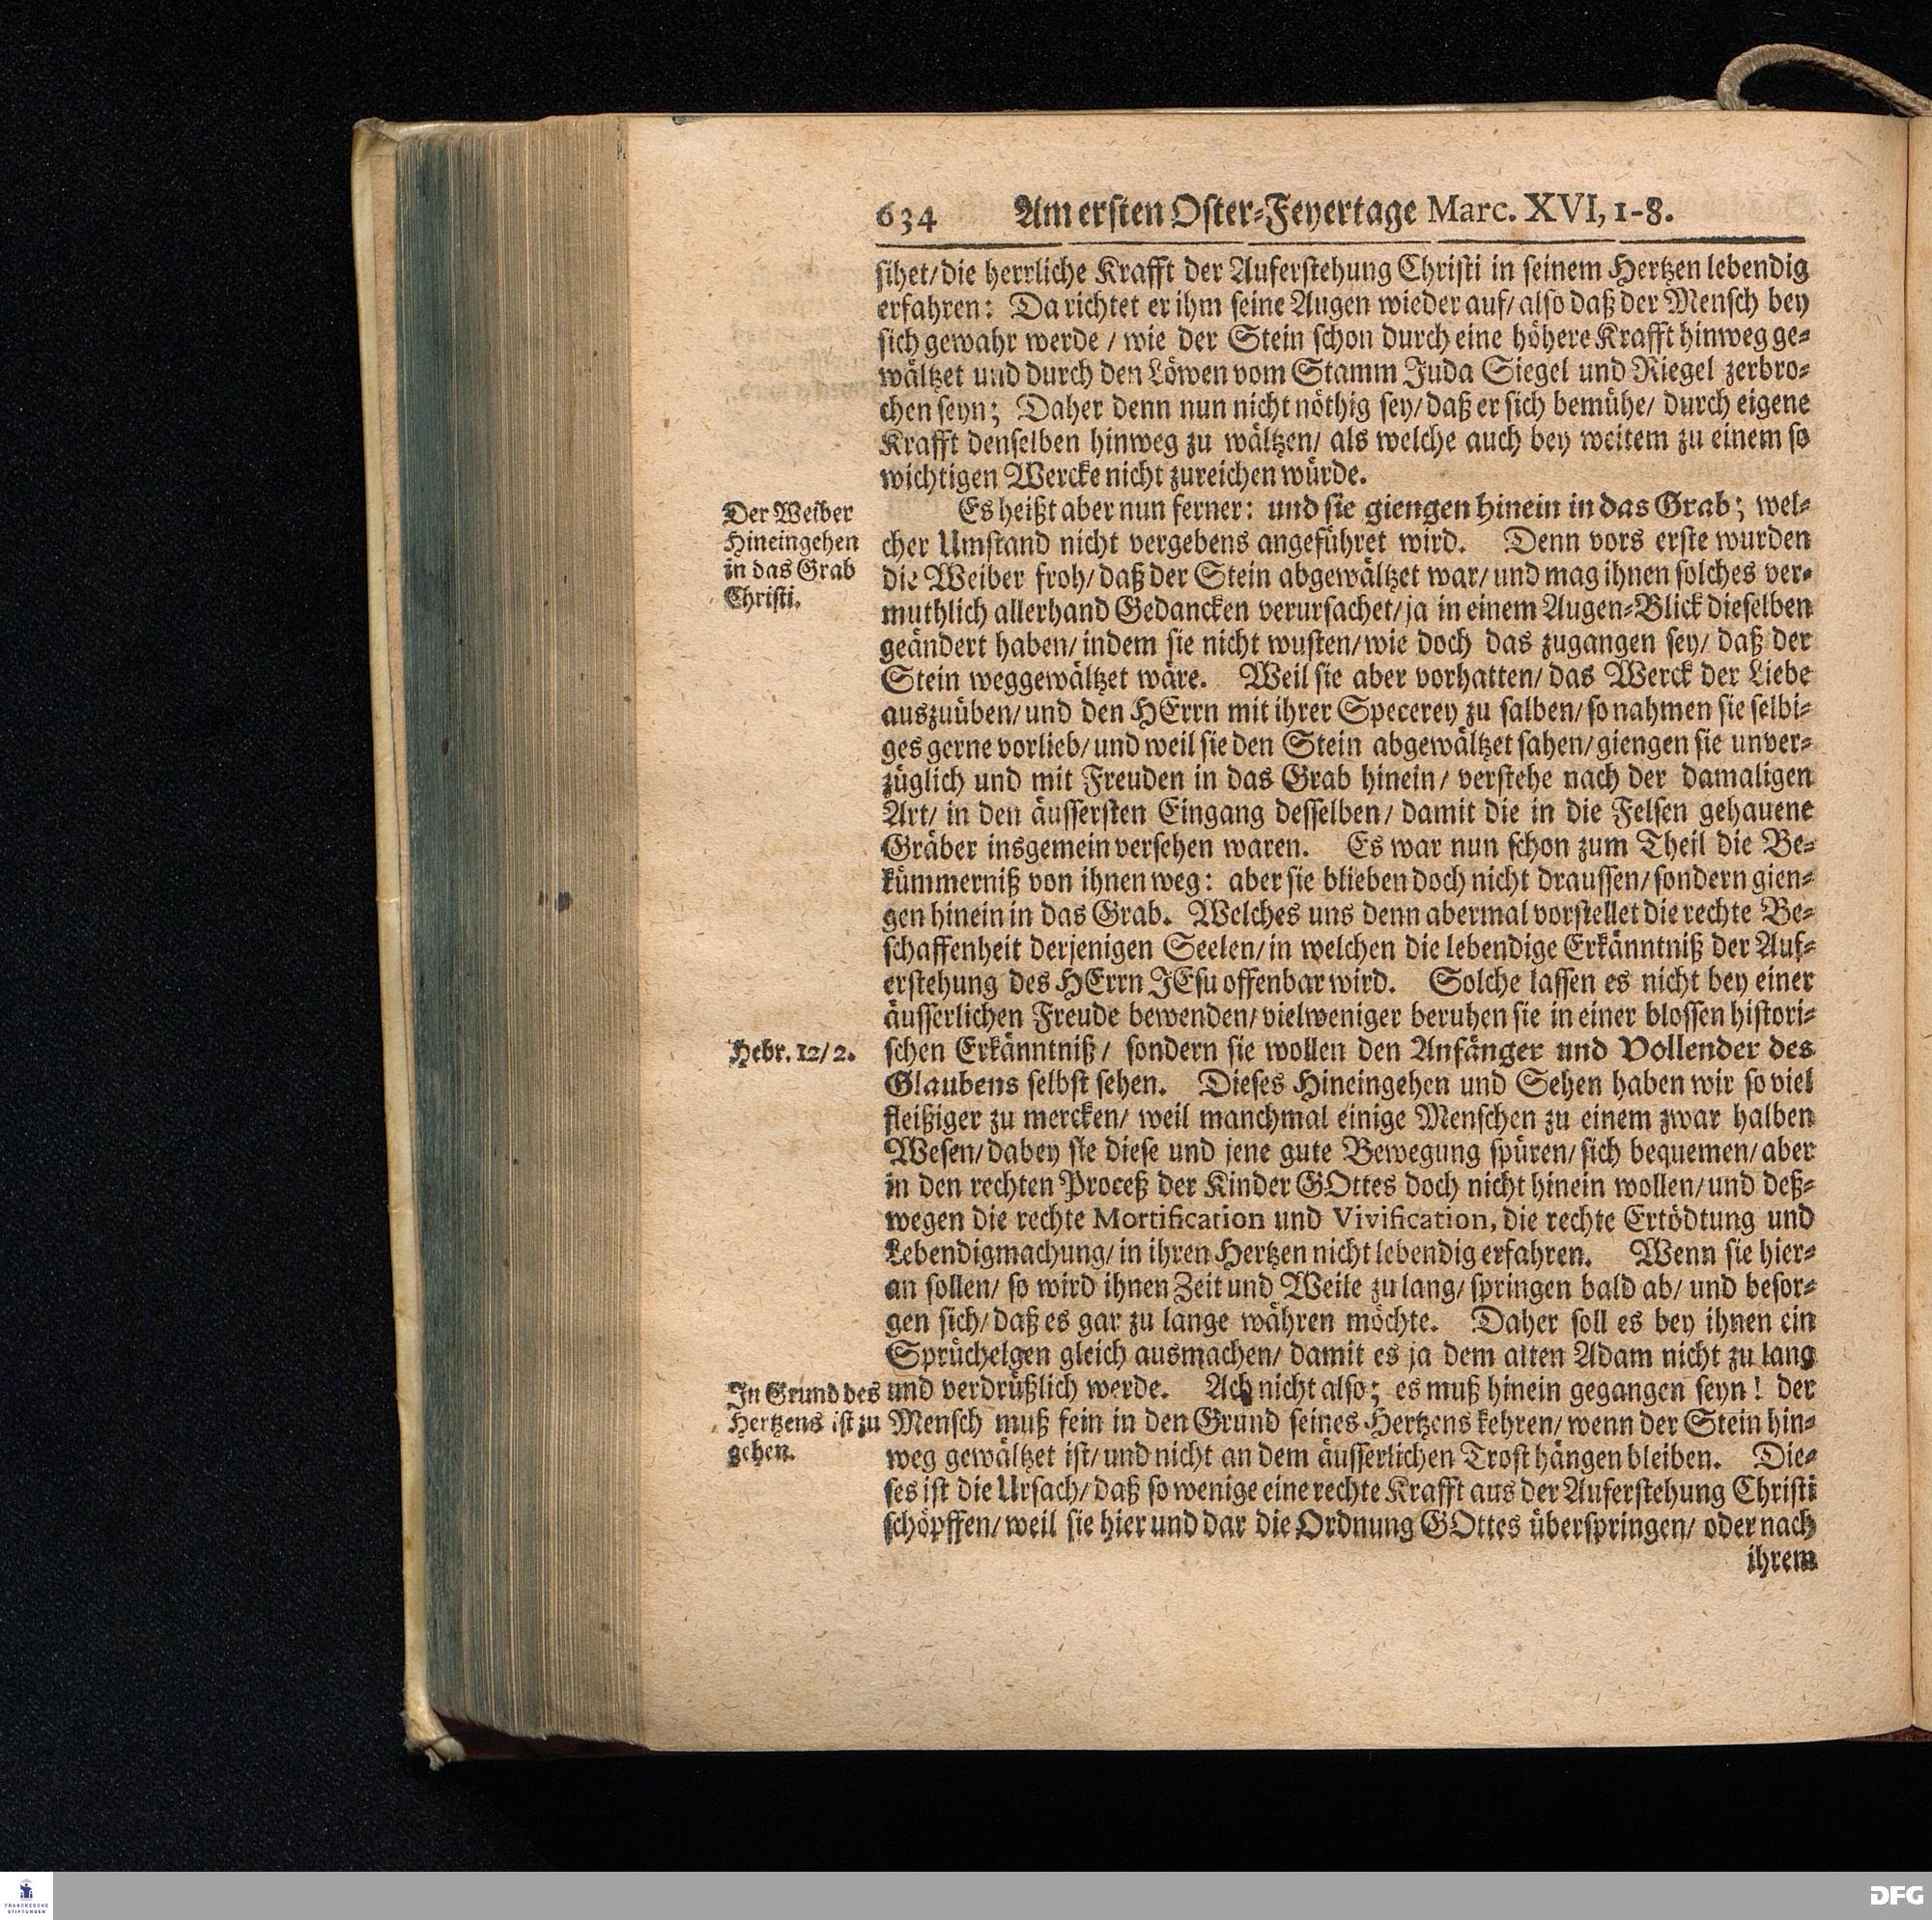 634 Am ersten Oster-Feyertage Marc. XVI, 1-8.
sihet/die herrliche Krafft der Auferstehung Christi in seinem Hertzen lebendig
erfahren: Da richtet er ihm seine Augen wieder auf/also daß der Mensch bey
sich gewahr werde / wie der Stein schon durch eine höhere Krafft hinweg ge-
wältzet und durch den Löwen vom Stamm Juda Siegel und Riegel zerbro-
chen seyn; Daher denn nun nicht nöthig sey/daß er sich bemühe/ durch eigene
Krafft denselben hinweg zu wältzen/ als welche auch bey weitem zu einem so
wichtigen Wercke nicht zureichen würde.
Der Weiber
Hineingehen
in das Grab
Christi.
Es heißt aber nun ferner: und sie giengen hinein in das Grab; wel-
cher Umstand nicht vergebens angeführet wird. Denn vors erste wurden
die Weiber froh/daß der Stein abgewältzet war/und mag ihnen solches ver-
muthlich allerhand Gedancken verursachet/ja in einem Augen-Blick dieselben
geändert haben/indem sie nicht wusten/wie doch das zugangen sey/ daß der
Stein weggewältzet wäre. Weil sie aber vorhatten/das Werck der Liebe
auszuüben/und den HErrn mit ihrer Specerey zu salben/so nahmen sie selbi-
ges gerne vorlieb/und weil sie den Stein abgewältzet sahen/giengen sie unver-
züglich und mit Freuden in das Grab hinein/ verstehe nach der damaligen
Art/ in den äussersten Eingang desselben/ damit die in die Felsen gehauene
Gräber insgemein versehen waren. Es war nun schon zum Theil die Be-
kümmerniß von ihnen weg: aber sie blieben doch nicht draussen/sondern gien-
gen hinein in das Grab. Welches uns denn abermal vorstellet die rechte Be-
schaffenheit derjenigen Seelen/in welchen die lebendige Erkänntniß der Auf-
erstehung des HErrn JEsu offenbar wird. Solche lassen es nicht bey einer
äusserlichen Freude bewenden/vielweniger beruhen sie in einer blossen histori-
Hebr. 12/2.
schen Erkänntniß/ sondern sie wollen den Anfänger und Vollender des
Glaubens selbst sehen. Dieses Hineingehen und Sehen haben wir so viel
fleißiger zu mercken/ weil manchmal einige Menschen zu einem zwar halben
Wesen/dabey sie diese und jene gute Bewegung spüren/sich bequemen/aber
in den rechten Proceß der Kinder GOttes doch nicht hinein wollen/und deß-
wegen die rechte Mortification und Vivification, die rechte Ertödtung und
Lebendigmachung/in ihren Hertzen nicht lebendig erfahren. Wenn sie hier-
an sollen/ so wird ihnen Zeit und Weile zu lang/springen bald ab/ und besor-
gen sich/daß es gar zu lange währen möchte. Daher soll es bey ihnen ein
Sprüchelgen gleich ausmachen/ damit es ja dem alten Adam nicht zu lang
In Grund des
Hertzens ist zu
gehen.
und verdrüßlich werde. Ach nicht also; es muß hinein gegangen seyn! der
Mensch muß fein in den Grund seines Hertzens kehren/wenn der Stein hin-
weg gewältzet ist/und nicht an dem äusserlichen Trost hängen bleiben. Die-
ses ist die Ursach/daß so wenige eine rechte Krafft aus der Auferstehung Christi
schöpffen/weil sie hier und dar die Ordnung GOttes überspringen/ oder nach
ihrem
FRANCKESCHE
STIFTUNGEN
DFG